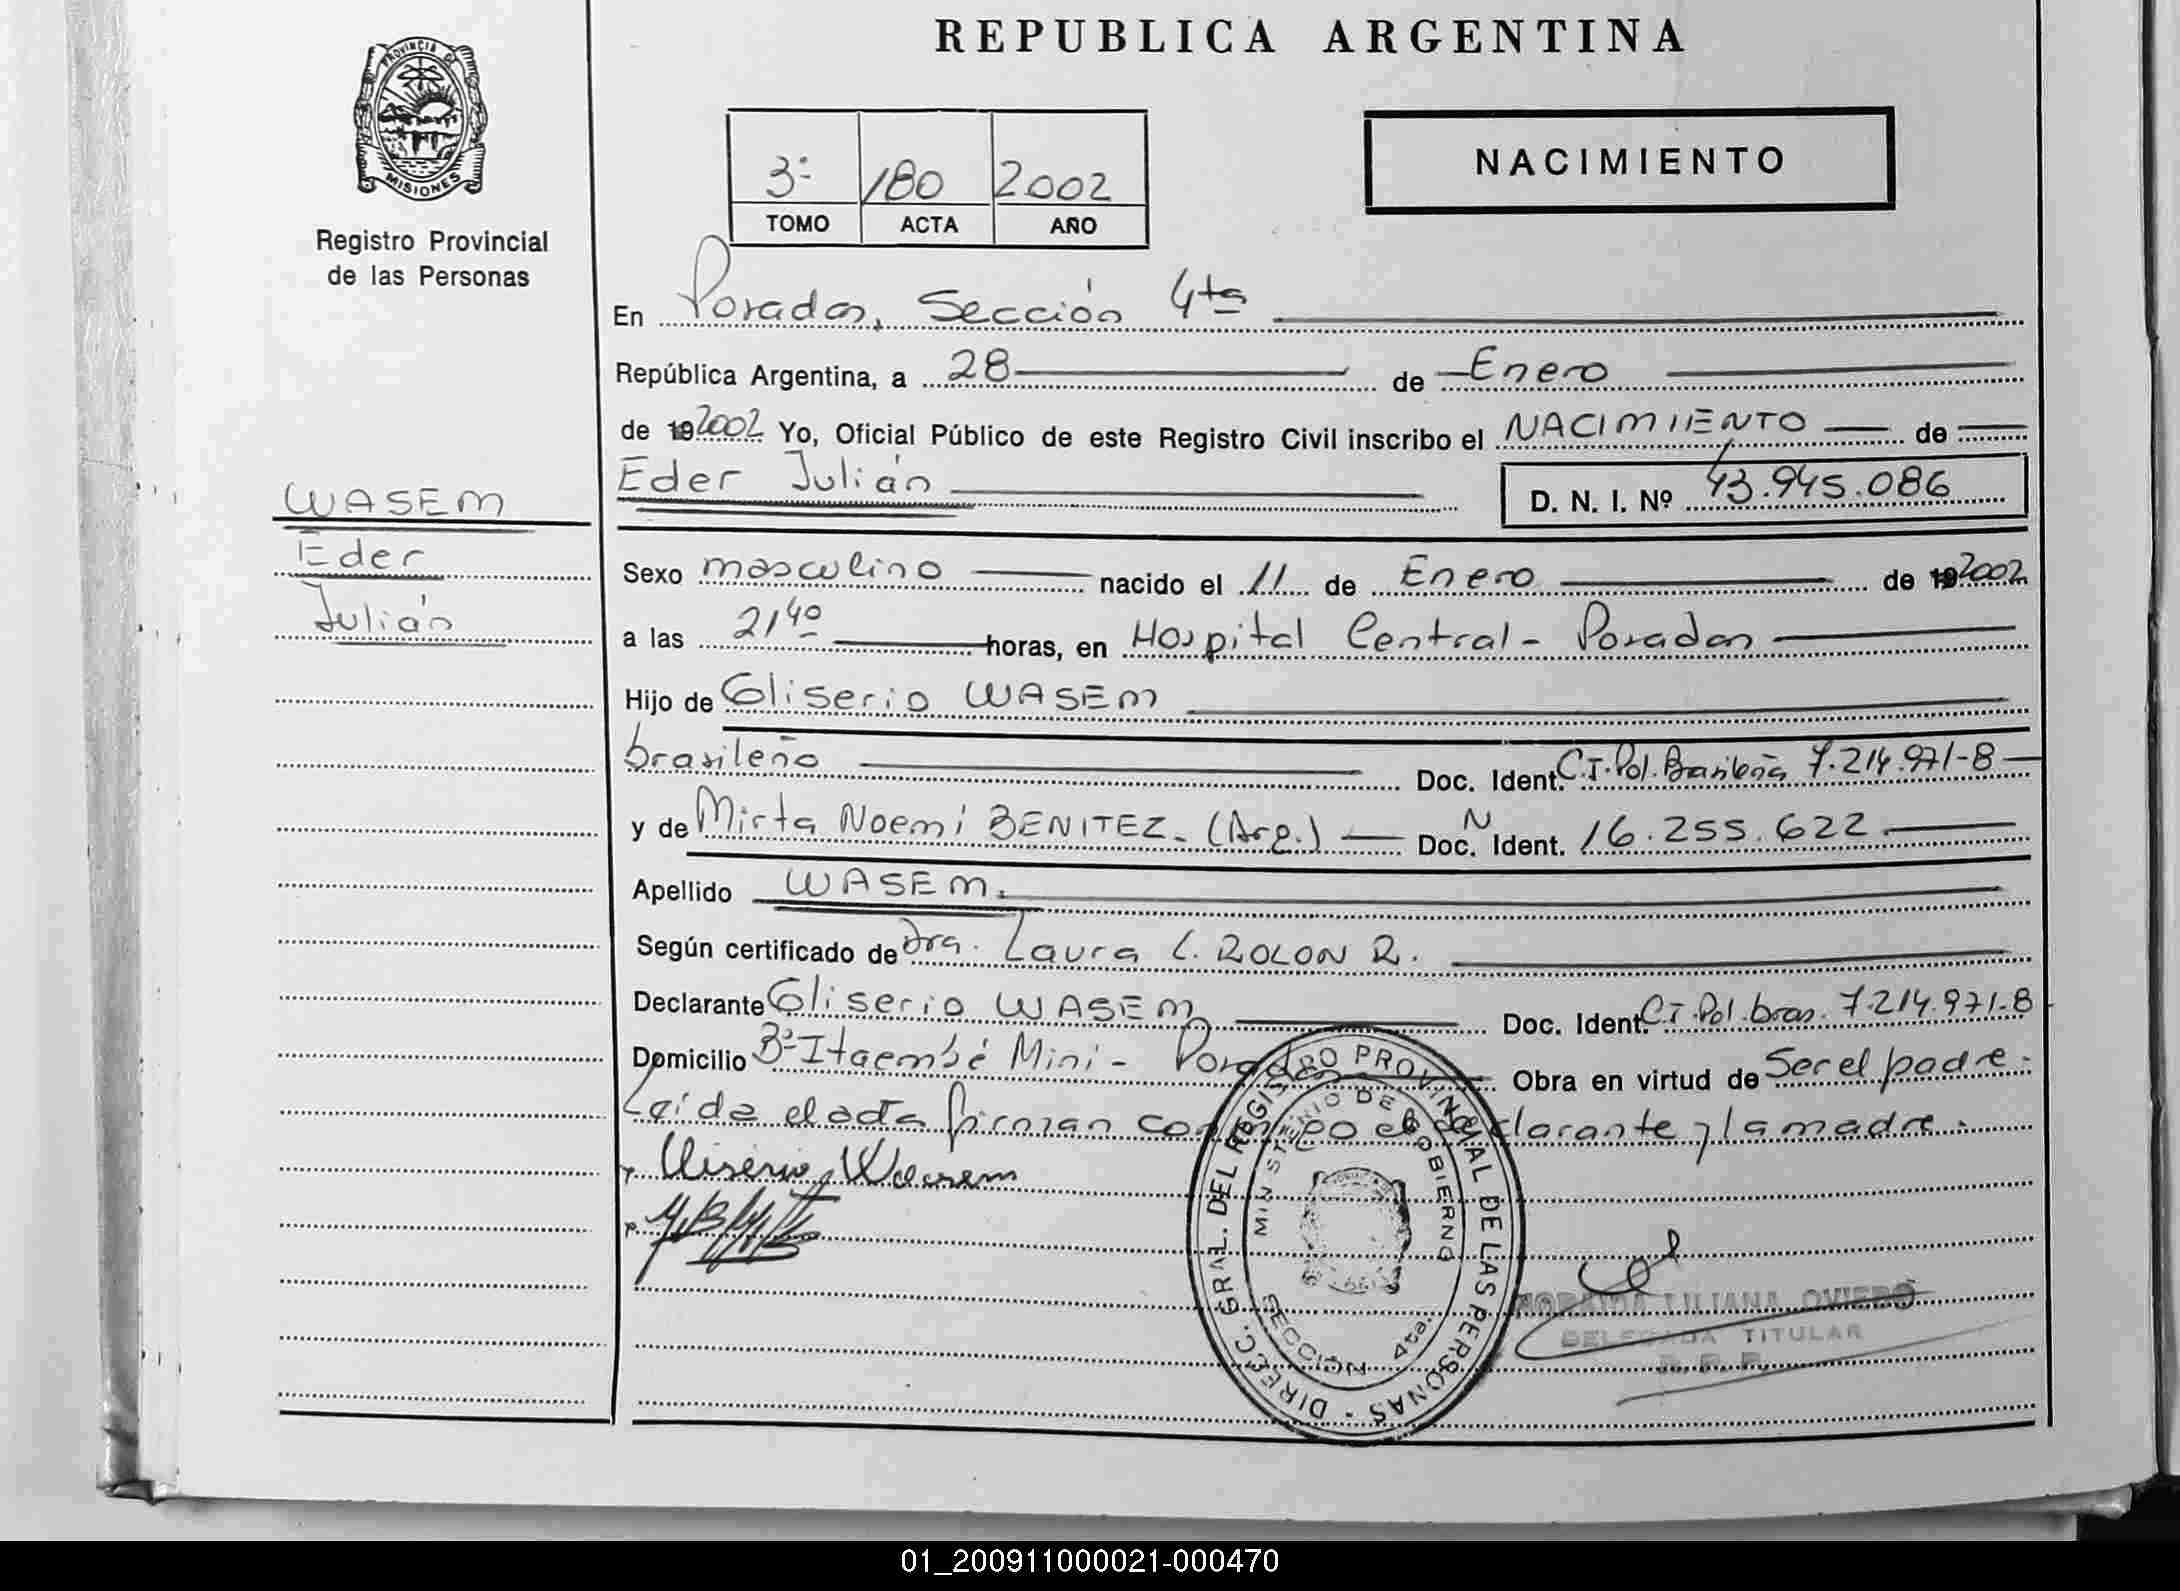 REPUBLICA ARGENTINA
PROVINCIA DE
MISIONES
Registro Provincial
de las Personas
3º 180 2002
TOMO ACTA AÑO
NACIMIENTO
En Posadas, Sección 4ta
República Argentina, a 28 de Enero
de 19 2002 Yo, Oficial Público de este Registro Civil inscribo el NACIMIENTO de
Eder Julián D. N. I. Nº 43.945.086
WASEM
Eder
Julián
Sexo masculino nacido el 11 de Enero de 19 2002
a las 21 40 horas, en Hospital Central - Posadas
Hijo de Gliserio WASEM
brasileño Doc. Ident. C.I. Pol. Brasileña 7.214.971-8
y de Mirta Noemí BENITEZ - (Arg.) Doc. N Ident. 16.255.622
Apellido WASEM.
Según certificado de Dra. Laura C. ROLON R.
Declarante Gliserio WASEM Doc. Ident. C.I. Pol. bras. 7.214.971-8
Domicilio Bº Itaembé Mini - Posadas Obra en virtud de Ser el padre.
Leída el acta firman conmigo el declarante y la madre.
DIREC. GRAL. DEL REGISTRO PROVINCIAL DE LAS PERSONAS
MINISTERIO DE GOBIERNO
SECCION 4ta.
LILIANA OVIEDO
DELEGADA TITULAR
R. P. P.
01_200911000021-000470